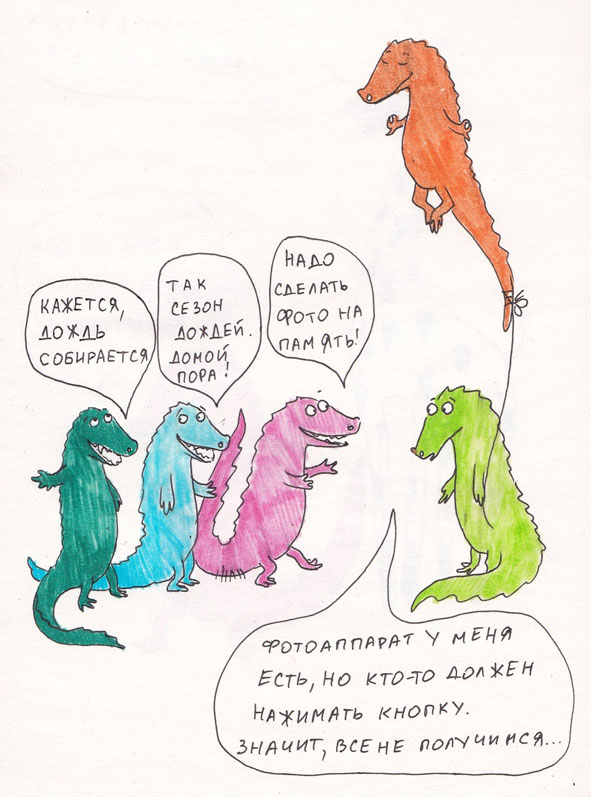 КАЖЕТСЯ,
ДОЖДЬ
СОБИРАЕТСЯ
ТАК
СЕЗОН
ДОЖДЕЙ.
ДОМОЙ
ПОРА!
НАДО
СДЕЛАТЬ
ФОТО НА
ПАМЯТЬ!
ФОТОАППАРАТ У МЕНЯ
ЕСТЬ, НО КТО-ТО ДОЛЖЕН
НАЖИМАТЬ КНОПКУ.
ЗНАЧИТ, ВСЕ НЕ ПОЛУЧИМСЯ...